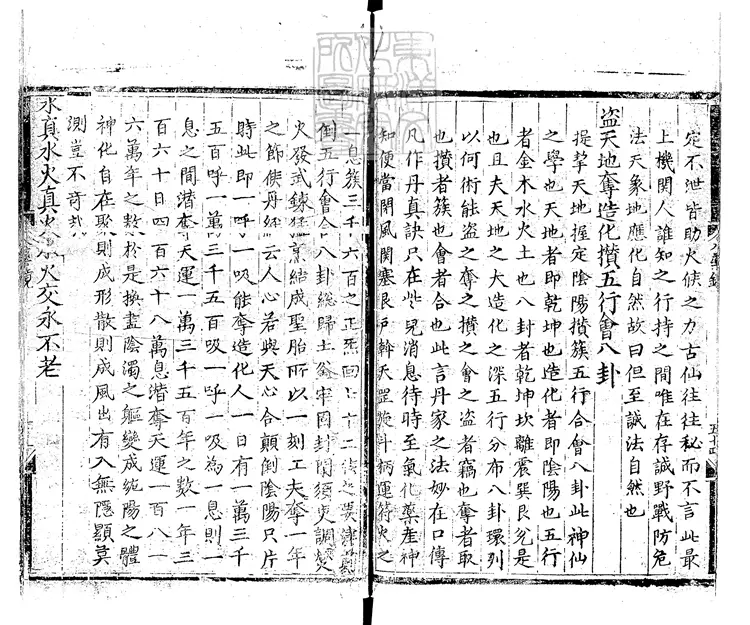 定不泄皆助火候之力古仙往往秘而不言此最
上機関人誰知之行持之間唯在存誠野戰防危
法天象地應化自然故曰但至誠法自然也
盗天地奪造化攅五行會八卦
提挈天地握定陰陽攅簇五行合會八卦此神仙
之學也天地者即乾坤也造化者即陰陽也五行
者金木水火土也八卦者乾坤坎離震巽艮兊是
也且夫天地之大造化之深五行分布八卦環列
以何術能盗之奪之攅之會之盗者竊也奪者取
也攅者簇也會者合也此言丹家之法妙在口傳
凡作丹真訣只在些兒消息待時至氣化藥産神
知便當開風関塞艮戶斡天罡旋斗柄運符火之
一息簇三千六百之正炁回七十二候之
倒五行會合八卦總歸土釜牢固封閉須臾調燮
火發武鍊猛烹結成聖胎所以一刻工夫奪一年
之節候丹經云人心若與天心合顛倒陰陽只片
時此即一呼一吸能奪造化人一日有一萬三千
五百呼一萬三千五百吸一呼一吸為一息則一
息之間潜奪天運一萬三千五百年之數一年三
百六十日四百六十八萬息潜奪天運一百八十
六萬年之數於是換盡陰濁之軀變成純陽之體
神化自在聚則成形散則成風出有入無隱顯莫
測豈不奇哉
水真水火真火水火交永不老